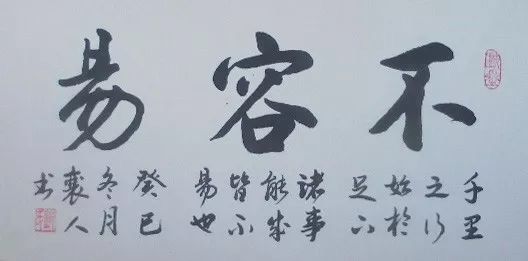 不容易
千里
之行
始於
足下
諸事
能成
皆不
易也
癸巳
冬月
襄人
书